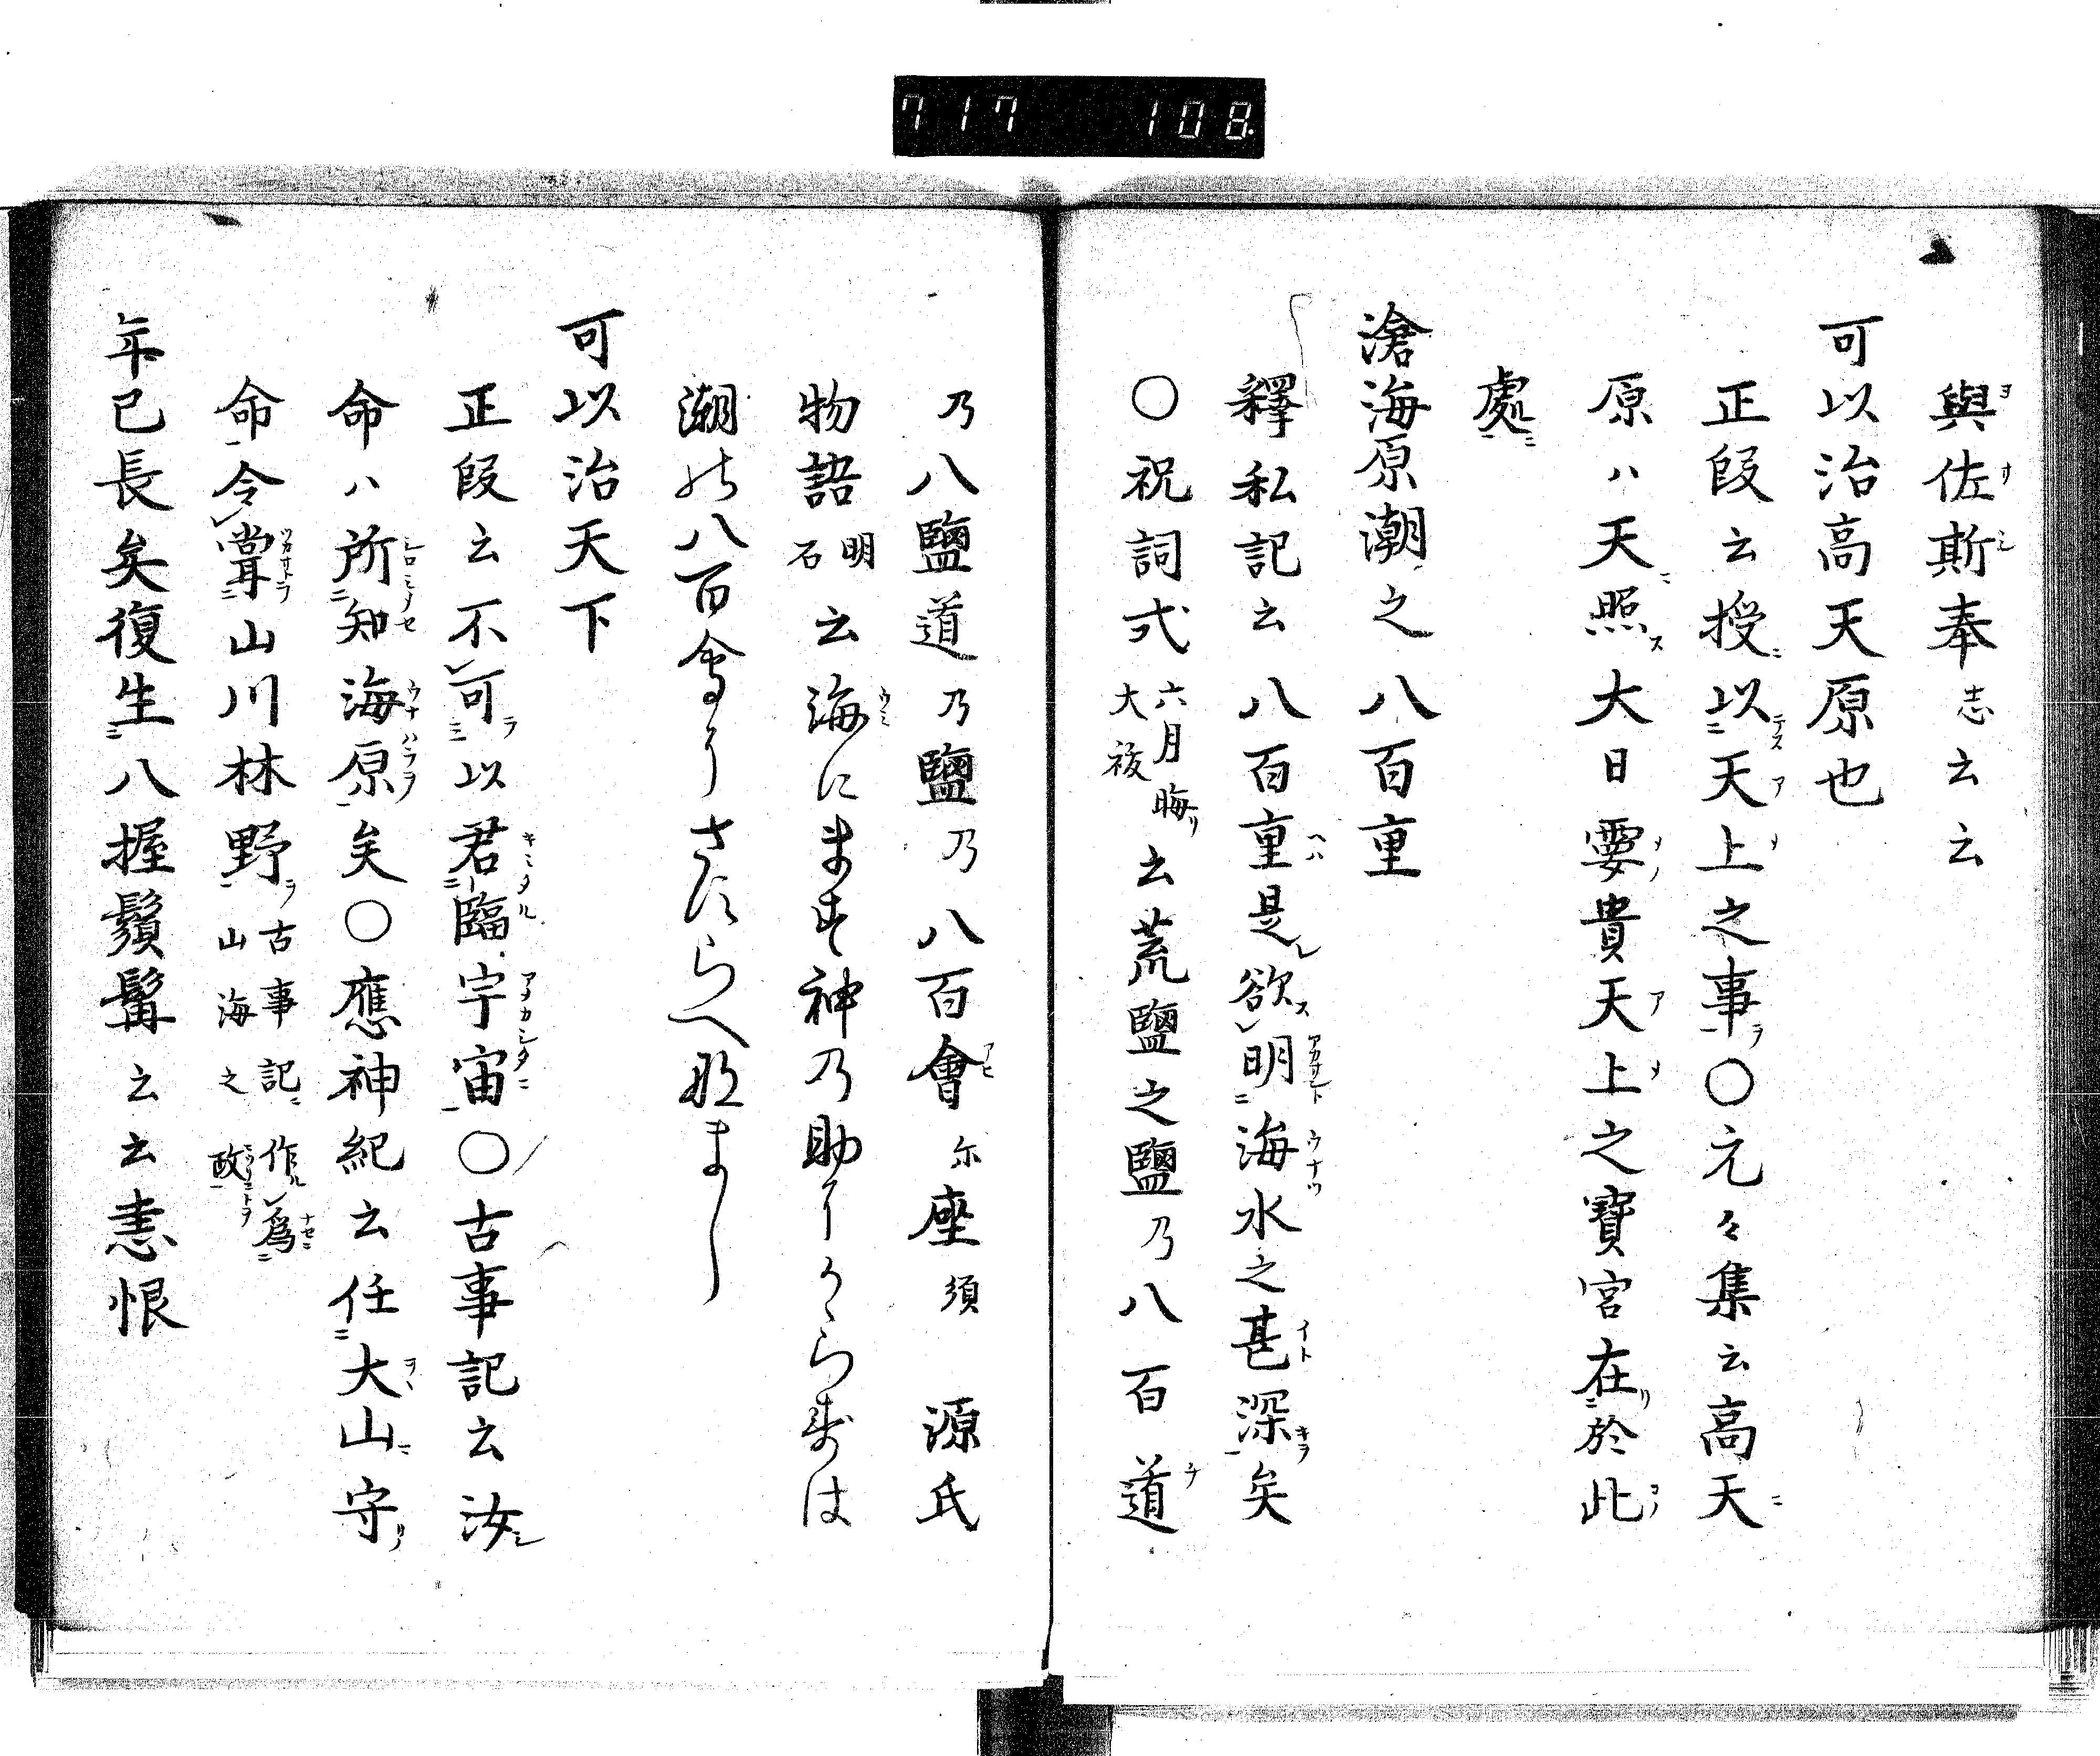 717 108
與佐斯奉志云云
可以治高天原也
正段云授以天上之事○元々集云高天
原ハ天照大日孁貴天上之寶宮在於此
處
滄海原潮之八百重
釋私記云八百重是欲明海水之甚深矣
○祝詞式六月晦大祓云荒鹽之鹽乃八百道
乃八鹽道乃鹽乃八百會尓座須 源氏
物語明石云海にます神の助にかゝらすは
潮の八百會にさすらへなまし
可以治天下
正段云不可以君臨宇宙○古事記云汝
命ハ所知海原矣○應神紀云任大山守
命令掌山川林野古事記作為山海之政
年已長矣復生八握鬚髯云云恚恨